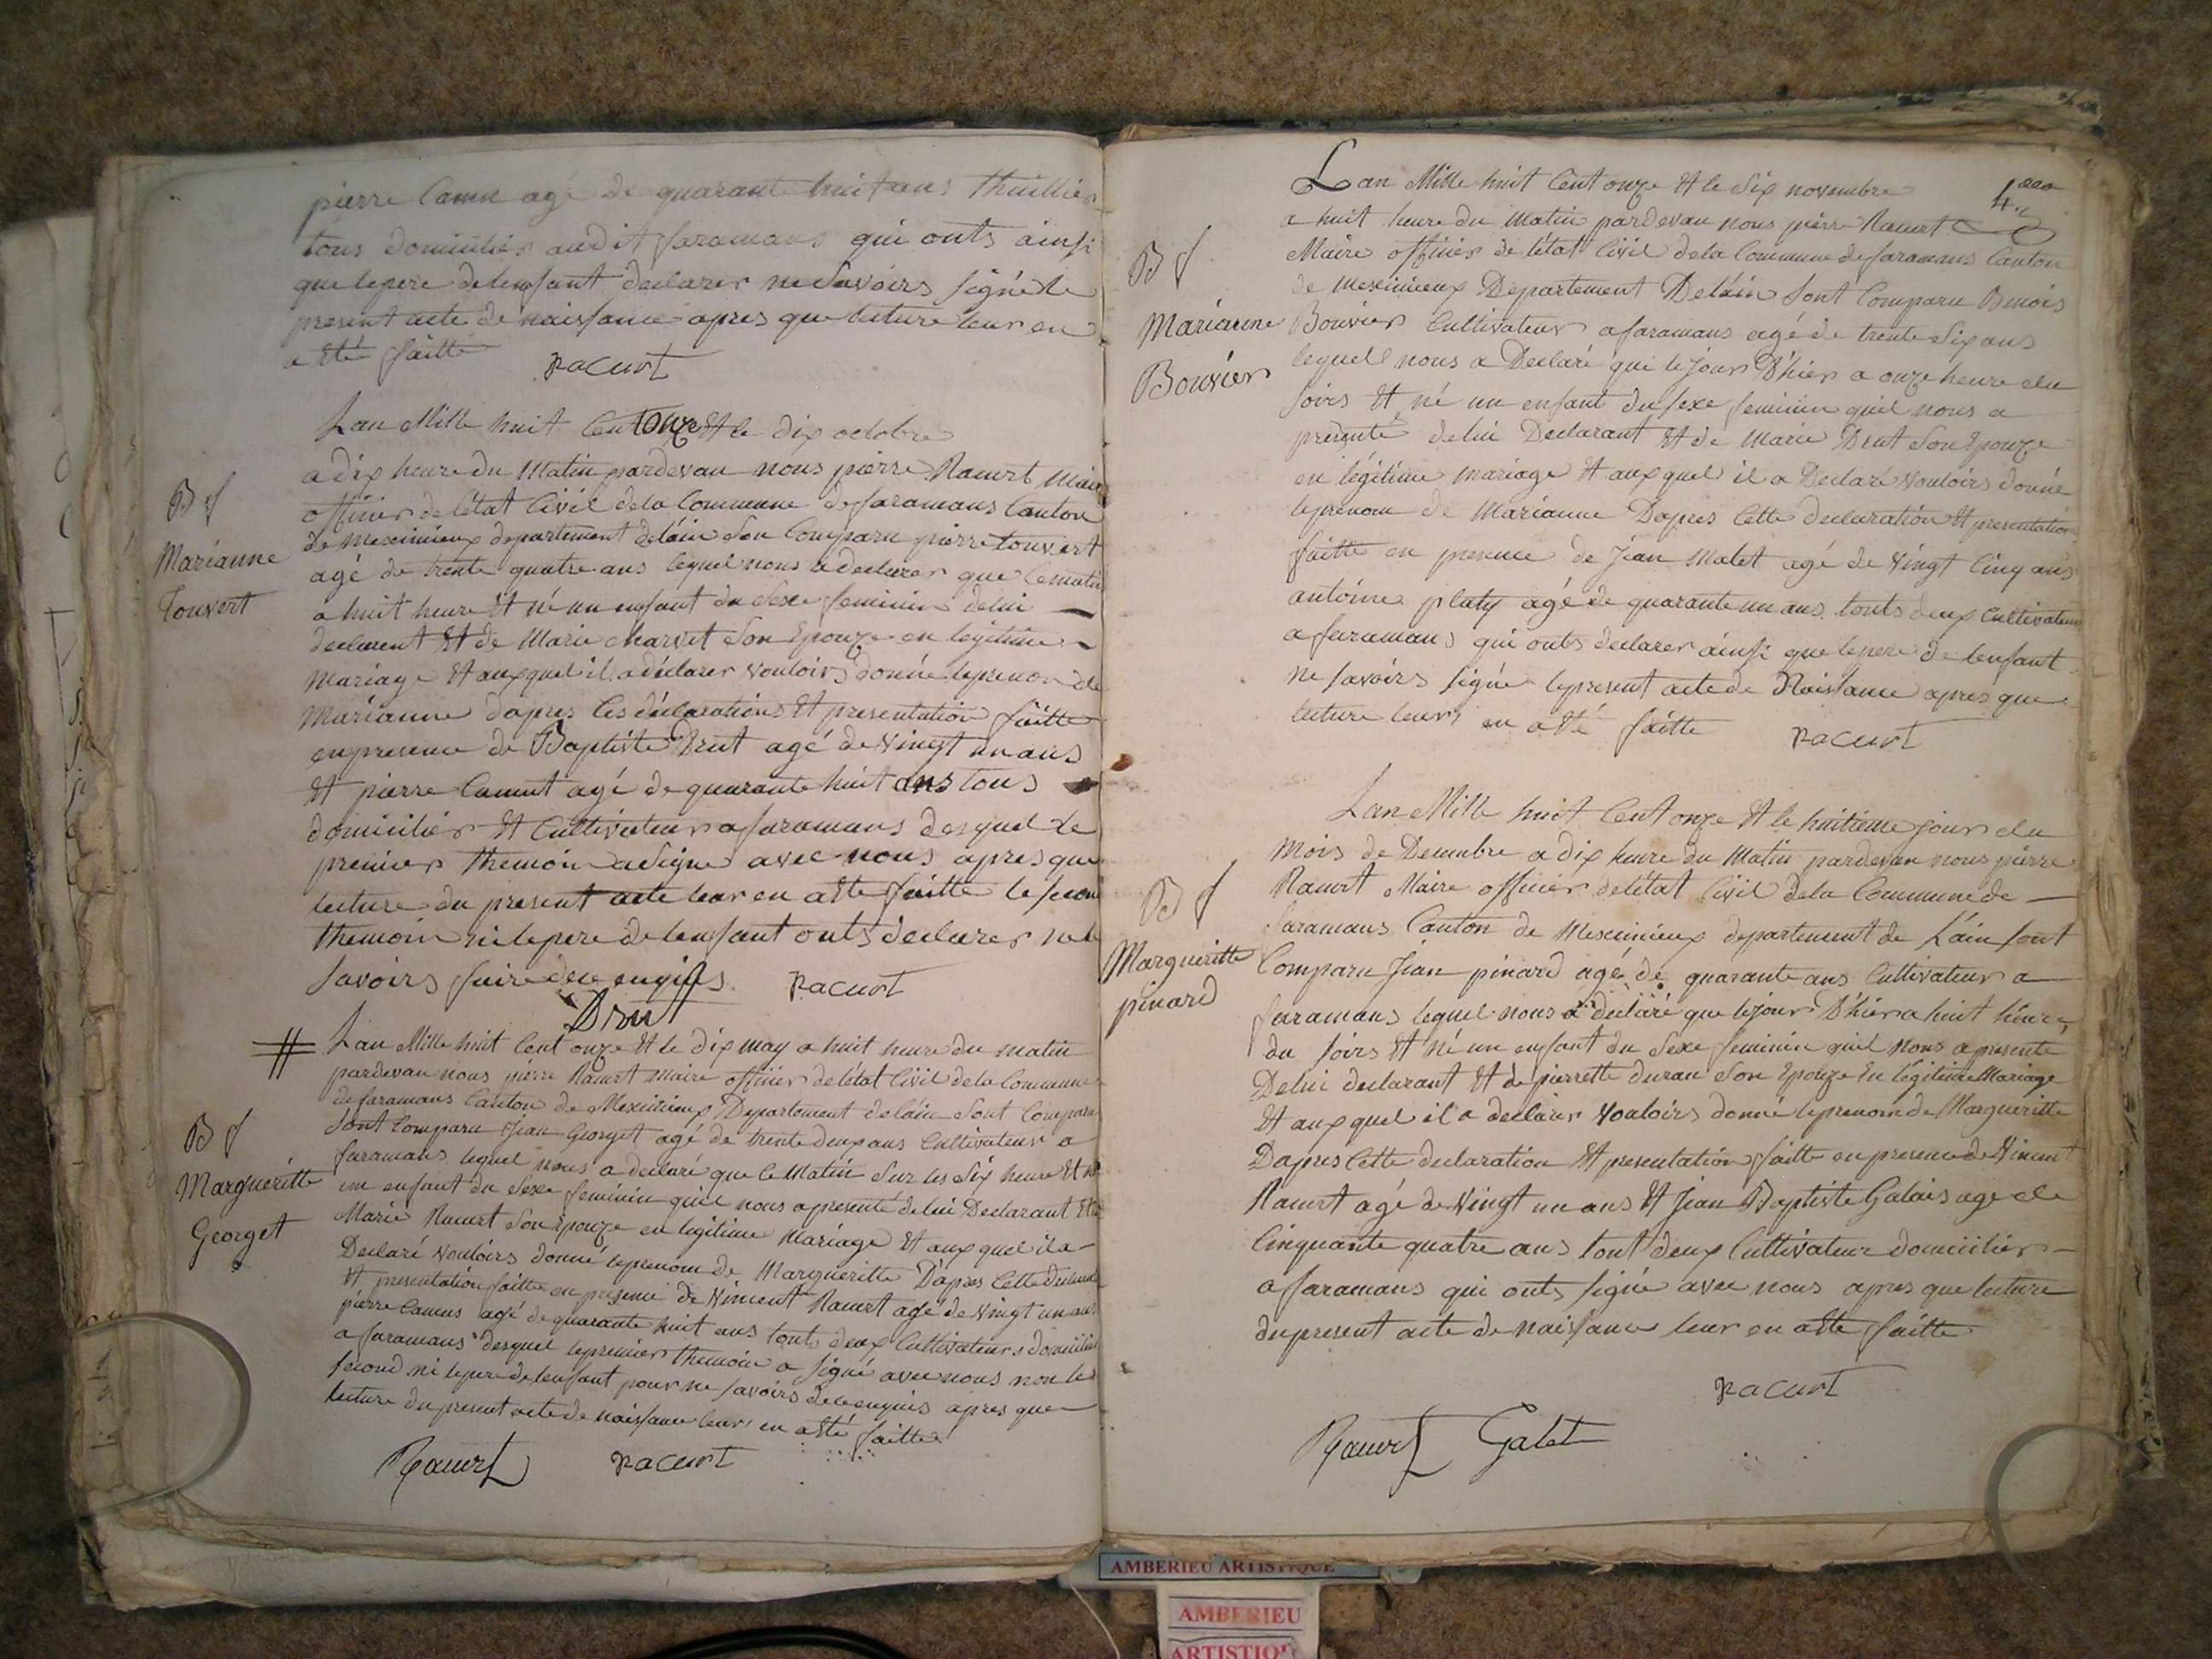 pierre Camu agé de quarante huit ans thuillier
tous domicilier audit faramans qui onts ainsi
que le pere de lenfant declarer ne Savoirs signé le
present acte de naissance apres que lecture leur en
a Eté faitte
Racurt
Lan Mille huit Cent Onze Et le dix octobre
a dix heure du Matin pardevan nous pierre Racurt Maire
officier de létat Civil dela Commune de faramans Canton
de meximieux departement deláin Son Comparu pierre touvert
agé de trente quatre ans lequel nous a declarer que Cematin
a huit heure Et né un enfant du Sexe feminin delui
declarent Et de Marie Charvet Son Epouze en legitime
Mariage Et auxquel il a déclarer vouloirs donné le prenon de
Marianne dapres les déclarations Et presentation faitte
en presence de Baptiste Brut agé de vingt un ans
Et pierre Camut agé de quarante huit ans tous
domicilier Et Cultivateur a faramans desquel Le
premier themoin a Signé avec nous apres que
lecture du present acte leur en a Eté faitte le secon
themoin ni le pere de lenfant onts declarer ne le
Savoirs faire dece enquis. Racurt
Brut
B f
Marianne
Touvert
# Lan Mille huit Cent onze Et le dix may a huit heure du matin
pardevan nous pierre Racurt maire officier de létat Civil de la Commune
de faramans Canton de Meximieux Departement deláin Sont Comparu
Sont Comparu Jean Georget agé de trente deux ans Cultivateur a
faramans lequel nous a declaré que le Matin Sur les Six heure Et né
un enfant du Sexe feminin quil nous a presenté de lui Declarant Et de
Marie Racurt Son Epouze en legitime Mariage Et aux quel il a
Declaré vouloirs donné le prenom de Margueritte Dápres Cette declaration
Et presentation faitte en presence de vincent Racurt agé de vingt un ans
pierre Camus agé de quarante huit ans touts deux Cultivateurs domicilier
a faramans desquel le premier themoin a Signé avec nous non le
second ni le pere de lenfant pour ne savoirs dece enquis apres que
lecture du present acte de naissance leur en a Eté faitte
Racurt Racurt
B f
Margueritte
Georget
4.e
Lan Mille huit Cent onze Et le Six novembre
a huit heure du Matin pardevan nous pierre Racurt
Maire officier de létat Civil de la Commune de faramans Canton
de Meximieux Departement Deláin Sont Comparu Benois
Bouvier Cultivateur a faramans agé de trente Six ans
lequell nous a Declaré que le Jour D'hier a onze heure du
soirs Et né un enfant du sexe feminin quil nous a
presenté delui Declarant Et de Marie Brut Son Epouze
en légitime mariage Et aux quel il a Declaré vouloirs donné
le prenom de Marianne Dapres Cette declaration Et presentation
faitte en presence de Jean Malet agé de vingt Cinq ans
antoine platy agé de quarante un ans touts deux Cultivateur
a faramans qui onts declarer ainsi que le pere de lenfant
ne savoirs signé le present acte de Naissance apres que
lecture leurs en a Eté faitte Racurt
B f
Marianne
Bouvier
Lan Mille huit Cent onze Et le huitieme jour du
mois de Decembre a dix heure du Matin pardevan nous pierre
Racurt Maire officier de létat Civil dela Commune de
faramans Canton de Meximieux departement de Láin sont
Comparu Jean pinard agé de quarante ans Cultivateur a
faramans lequel nous a declaré que le jour D'hier a huit heure
du soirs Et né un enfant du Sexe feminin quil nous a presenté
Delui declarant Et de pierrette duran Son Epouze En légitime Mariage
Et aux quel il a declarer vouloirs donné le prenom de Margueritte
Dapres Cette declaration Et presentation faitte en presence de vincent
Racurt agé de vingt un ans Et Jean Baptiste Galais age de
Cinquante quatre ans tout deux Cultivateur domicilier
a faramans qui onts signé avec nous apres que lecture
du present acte de naissance leur en a Eté faitte
Racurt
Racurt Galet
B f
Margueritte
pinard
AMBERIEU ARTISTIQUE
AMBERIEU
ARTISTIQUE